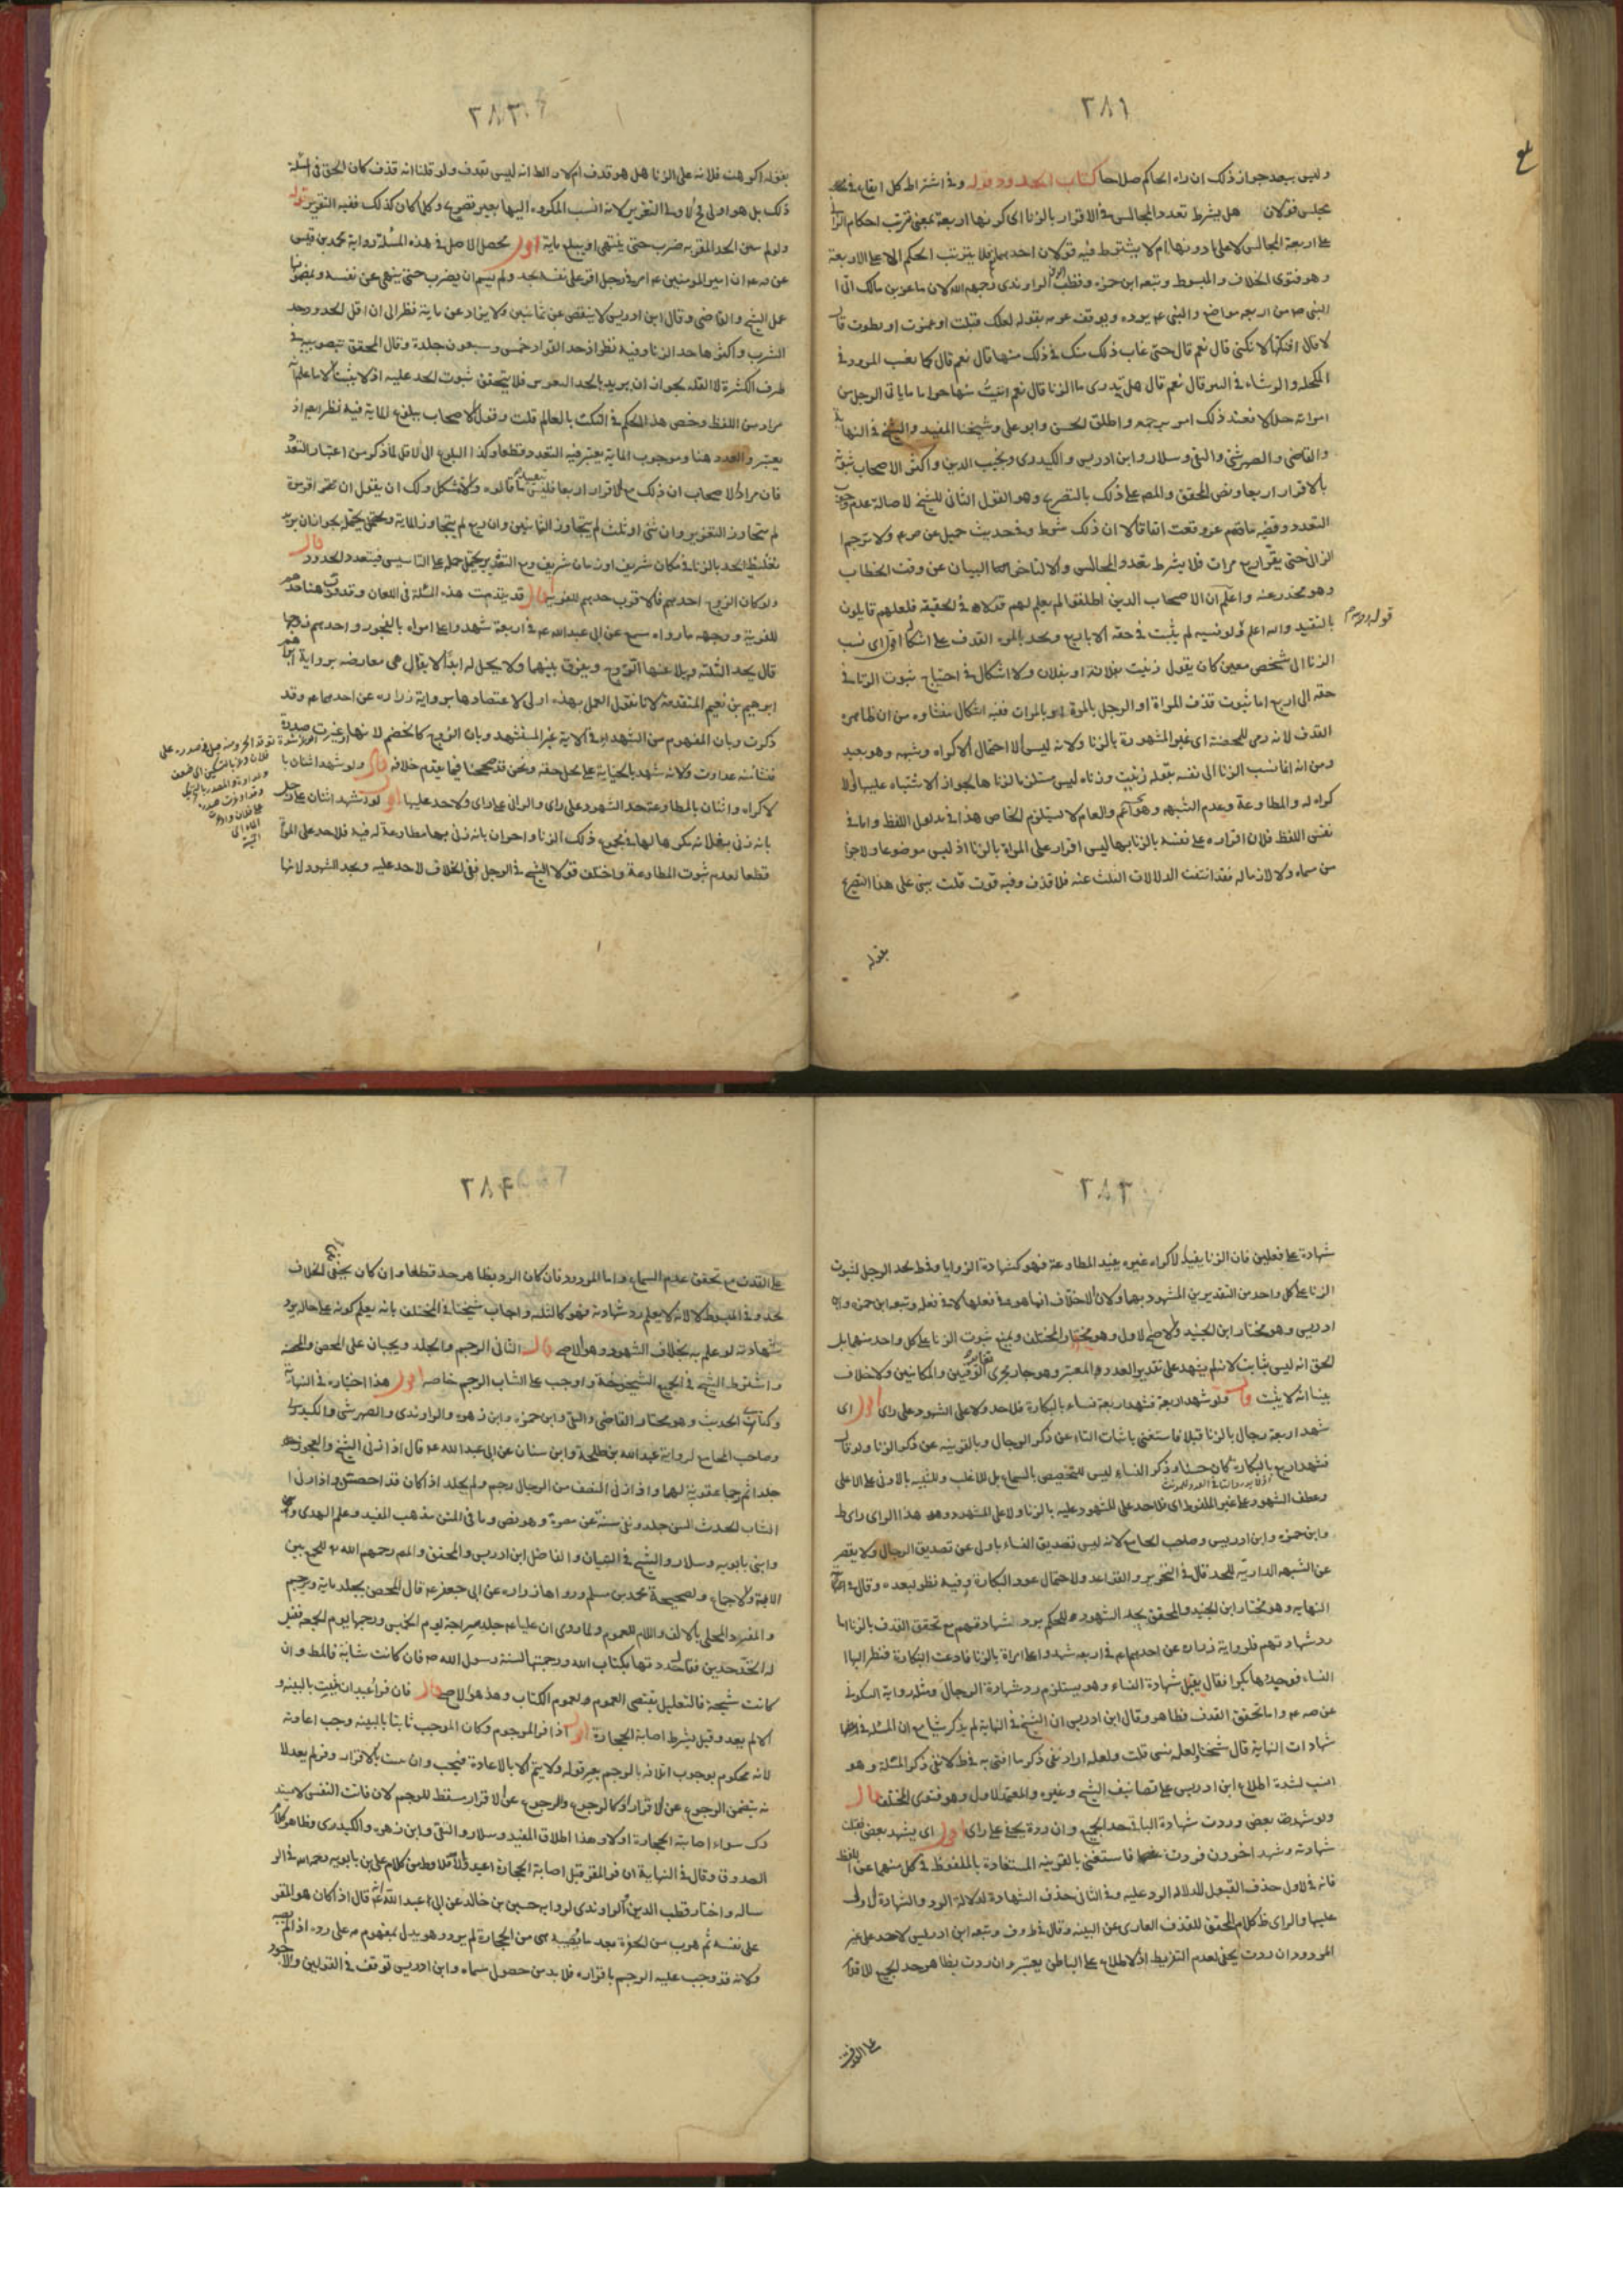 ٢٨١
وليس ببعد جواز ذلك ان راه الحاكم صلاحا كتاب الحدود قوله وفى اشتراط كل ايقاع فى
مجلس قولان هل يشترط تعدد المجالس فى الاقرار بالزنا اى كونها اربعة بمعنى ترتب احكام الزنا
على اربعة المجالس لا على ما دونها ام لا يشترط فيه قولان احدهما فلا يترتب الحكم الا على الاربعة
وهو فتوى الخلاف والمبسوط وتبعه ابن حمزه وقطب الدين الراوندى رحمهم الله لان ماعز بن مالك اتى
النبى ص من اربعه مواضع والنبى ع يرده ويوقف عزمه بقوله لعلك قبلت او غمزت او نظرت قال
لا قال افنكتها لا تكنى قال نعم قال حتى غاب ذلك منك فى ذلك منها قال نعم قال كما يغيب المرود فى
المكحلة والرشاء فى البير قال نعم قال هل تدرى ما الزنا قال نعم اتيت منها حراما ما ياتى الرجل من
امراته حلالا فعند ذلك امر برجمه واطلق الحسن وابو على وشيخنا المفيد والشيخ فى النهاية
والقاضى والصهرشتى والتقى وسلار وابن ادريس والكيدرى ونجيب الدين واكثر الاصحاب ثبوته
بالاقرار اربعا ونص المحقق والمص على ذلك بالتصريح وهو القول الثانى للشيخ لاصالة عدم وجوب
التعدد وقضيه ماعز وقعت اتفاقا لا ان ذلك شرط وفى حديث جميل عن ص ع ولا يرجم
الزانى حتى يقر اربع مرات فلا يشرط تعدد المجالس والا لتاخر البيان عن وقت الخطاب
وهو محذور عنه واعلم ان الاصحاب الذين اطلقوا لم يعلم لهم قولان فى الحقيقة فلعلهم قايلون
بالتقييد والله اعلم قوله ولو نسبه لم يثبت فى حقه الا باربع ويحد بالمرة القذف على اشكال اقول اى نسب
الزنا الى شخص معين كان يقول زنيت بفلانة او بفلان ولا اشكال فى احتياج ثبوت الزنا فى
حقه الى اربع اما ثبوت قذف المراة او الرجل بالمرة او بالمرات ففيه اشكال منشاوه من ان ظاهره
القذف لانه رمى للمحصنة اى غير المشهورة بالزنا ولانه ليس الا احتمال الاكراه وشبهه وهو بعيد
ومن انه انما نسب الزنا الى نفسه بقوله زنيت وزناه ليس مستلزما لزناها لجواز الاشتباه عليها والا
كراه له والمطاوعة وعدم الشبهه وهو اعم والعام لا يستلزم الخاص هذا فى مدلول اللفظ واما فى
نفس اللفظ فلان اقراره على نفسه بالزنا بها ليس اقرار على المراة بالزنا اذ ليس موضوعا ولا جزا
من مسماه ولا لازما له فقد انتفت الدلالات الثلث عنه فلا قذف وفيه قوت قلت يبنى على هذا التصريح
بقوله
٢٨٢
بقوله اكرهت فلانه على الزنا هل هو قذف ام لا والظ انه ليس بقذف ولو قلنا انه قذف كان الحق فى المسئلة
ذلك بل هو اولى فى الاول فى التعزير لانه انسب المكروه اليها بغير قصر وكل كان كذلك ففيه التعزير قوله
ولو لم يبين الحد المقر به ضرب حتى ينتهى او يبلغ ماية اقول يحصل الاصل فى هذه المسئلة رواية محمد بن قيس
عن ص ع ان امير المؤمنين ع امر فى رجل اقر على نفسه بحد ولم يسم ان يضرب حتى ينهى عن نفسه وبمضمونها
عمل الشيخ والقاضى وقال ابن ادريس لا ينقص عن ثمانين ولا يزاد عن ماية نظرا الى ان اقل الحدود حد
الشرب واكثرها حد الزنا وفيه نظر اذ حد القواد خمس وسبعون جلدة وقال المحقق بتصويبه فى
طرف الكثرة لا القلة لجواز ان يريد بالحد التعزير فلا يتحقق ثبوت الحد عليه اذ لا يثبت الا ما علم انه
مراد من اللفظ وخص هذا الحكم فى النكت بالعالم قلت وقول الاصحاب ببلوغ الماية فيه نظر ايضا اذ
يعتبر والعدد هنا وموجوب الماية يعتبر فيه التعدد قطعا وكذا البلوغ الى الاقل لما ذكر من اعتبار التعدد
فان مراد الاصحاب ان ذلك مع الاقرار اربعا فليس ما قالوه والا فمشكل ولك ان يقول ان عمم اقر مرة
لم يتجاوز التعزير وان ثنى او ثلث لم يتجاوز الثمانين وان ربع لم يتجاوز الماية ويحتمل يجوز ان يريد
تغليظ الحد بالزنا فى مكان شريف او زمان شريف ومع التقدير يحتمل حمل على التاسيس فيتعدد الحدود قال
ولو كان الزوج احدهم فالاقرب حدهم للفرية اقول قد تقدمت هذه المسئلة فى اللعان وقد قرب هنا حدهم
للفرية ووجهه ما رواه مسمع عن ابى عبد الله ع فى اربعة شهدوا على امراة بالفجور واحدهم زوجها
قال يحد الثلثة ويلاعنها الزوج ويفرق بينهما ولا يحل له ابدا لا يقال هى معارضه برواية
ابرهيم بن نعيم المتقدمة لانا نقول العمل بهذه اولى لاعتضادها برواية زراره عن احدهما ع وقد
ذكرت وبان المفهوم من الشهداء فى الاية غير المستشهد وبان الزوج كالخصم لانها
ولانه شهد بالجناية على محل حقه ونحن قد صححنا فيما تقدم خلافه قال ولو شهد اثنان با
لاكراه واثنان بالمطاوعة حد الشهود على راى والزانى على راى ولا حد عليها اقول لو شهد اثنان على رجل
بانه زنى بفلانه مكرها لها فى جميع ذلك الزنا واخران بانه زنى بها مطاوعة له فيه فلا حد على المراة
قطعا لعدم ثبوت المطاوعة واختلف قولا الشيخ فى الرجل ففى الخلاف لا حد عليه ويحد الشهود لانها
٢٨٣
شهادة على فعلين فان الزنا بقيد الاكراه غيره بقيد المطاوعة فهو كشهادة الزوايا وفى ط يحد الرجل لثبوت
الزنا على كل واحد من التقديرين المشهود بهما ولان الاختلاف انما هو فى فعلها لا فى فعله وتبعه ابن حمزه وابن
ادريس وهو مختار ابن الجنيد والاصح الاول وهو مختار المختلف ويمنع ثبوت الزنا على كل واحد منهما بل
الحق انه ليس بثابت لانه لم يشهد على تقدير العدد والمعتبر وهو جار مجرى تغاير الوقتين والمكانين ولا خلاف
بيننا انه لا يثبت قال ولو شهد اربعة فشهد اربعة نساء بالبكارة فلا حد ولا على الشهود على راى اقول اى
شهد اربعة رجال بالزنا قبلا فاستغنى باثبات التاء عن ذكر الرجال وبالقرينه عن ذكر الزنا ولو قال
فشهد اربع بالبكارة كان حسنا وذكر النساء ليس للتخصيص بالسماع بل للاغلب وللتنبيه بالادنى على الاعلى
وعطف الشهود على غير الملفوظ اى فلا حد على المشهود عليه بالزنا ولا على الشهود وهو هذا الراى راى ط
وابن حمزه وابن ادريس وصاحب الجامع لانه ليس تصديق النساء باولى عن تصديق الرجال ولا يقصر
عن الشبهه الداريه للحد قال فى التحرير والقواعد ولاحتمال عود البكارة وفيه نظر لبعده وقال فى
النهايه وهو مختار ابن الجنيد والمحقق بحد الشهود للحكم برد شهادتهم مع تحقق القذف بالزنا اما
رد شهادتهم فلرواية زراره عن احدهما ع فى اربعه شهدوا على امراة بالزنا فادعت البكارة فنظر اليها
النساء فوجدنها بكرا فقال يقبل شهادة النساء وهو يستلزم رد شهادة الرجال ومثله رواية السكونى
عن ص ع واما تحقق القذف فظاهر وقال ابن ادريس ان الشيخ فى النهاية لم يذكر شيا مع ان المسئلة فى
شهادات النهاية قال شيخنا لعله نسى قلت ولعله اراد نفى ذكر ما افتى به فى ط لا نفى ذكر المسئلة وهو
انسب لشدة اطلاع ابن ادريس على تصانيف الشيخ وغيره والمعتمد الاول وهو فتوى المختلف قال
ولو شهد بعض وردت شهادة الباقى حد الجميع وان ردة بخفى على راى اقول اى شهد بعض فقبلت
شهادته وشهد اخرون فردت فاستغنى بالقرينه المستفادة بالملفوظ فى كل منهما عن اللفظ
فانه فى الاول حذف القبول لدلالة الرد عليه وفى الثانى حذف الشهادة لدلالة الرد والشهادة الاولى
عليها والراى ظ كلام المحقق للقذف العارى عن البينه وقال فى ط وف وتبعه ابن ادريس لا حد على غير
المردود ان ردت بخفى لعدم التفريط اذ الاطلاع على الباطن يعتبر وان ردت بظاهر حد الجميع للاقدام
على القذف
٢٨٤
على القذف مع تحقق عدم السماع واما المردود فان كان الرد بظاهر حد قطعا وان كان بخفى ففى الخلاف
يحد وفى المبسوط لا لانه لا يعلم رد شهادته فهو كالثلثه واجاب شيخنا فى المختلف بانه يعلم كونه على حال يرد
شهادته لو علم به بخلاف الشهود وهو الاصح قال الثانى الرجم والجلد ويجبان على المحصن والمحصنه
واشترط الشيخ فى الجمع الشيخوخة واوجب على الشاب الرجم خاصه اقول هذا اختياره فى النهاية
وكتابى الحديث وهو مختار القاضى والتقى وابن حمزه وابن زهره والراوندى والصهرشتى والكيدرى
وصاحب الجامع لرواية عبد الله بن طلحة وابن سنان عن ابى عبد الله ع قال اذا زنى الشيخ والعجوز
جلدا ثم رجما عقوبة لهما واذا زنى النصف من الرجال رجم ولم يجلد اذا كان قد احصن واذا زنى
الشاب الحدث السن جلد ونفى سنة عن مصره وهو نص وما فى المتن مذهب المفيد وعلم الهدى
وابنى بابويه وسلار والشيخ فى التبيان والفاضل ابن ادريس والمحقق والمص رحمهم الله للجمع بين
الاية والاجماع ولصحيحة محمد بن مسلم ورواها زراره عن ابى جعفر ع قال المحصن يجلد ماية ويرجم
والمفرد المحلى بالالف واللام للعموم ولما روى ان عليا ع جلد سراجة يوم الخميس ورجمها يوم الجمعه فقيل
له اتحد حدين فقال حددتها بكتاب الله ورجمتها لسنة رسول الله ص فان كانت شابة فالمط وان
كانت شيخة فالتعليل يقتضى العموم ولعموم الكتاب وهذا هو الاصح قال فان فر اعيد ان ثبت بالبينه و
الا لم يعد وقيل يشرط اصابة الحجارة اقول اذا فر المرجوم وكان الموجب ثابتا بالبينه وجب اعادته
لانه محكوم بوجوب اتلافه بالرجم بغير قوله ولا يتم الا بالاعادة فيجب وان ثبت بالاقرار وفر لم يعد لا
نه يتضمن الرجوع عن الاقرار او كالرجوع والرجوع عن الاقرار يسقط للرجم لان فائت النفس لا يستد
رك سواء اصابته الحجارة اولا وهذا اطلاق المفيد وسلار والتقى وابن زهره والكيدرى وظاهر كلام
الصدوق وقال فى النهاية ان فر المقر قبل اصابة الحجارة اعيد والا فلا وظ من كلام على بن بابويه رحمه الله فى الر
ساله واختار قطب الدين الراوندى لرواية حسين بن خالد عن ابى عبد الله ع قال اذا كان هو المقر
على نفسه ثم هرب من الحفرة بعد ما يصيبه شى من الحجارة لم يرد وهو يدل بمفهومه على رده اذا لم يصبه
ولانه قد وجب عليه الرجم باقراره فلا بد من حصول مسماه وابن ادريس توقف فى القولين والاجود